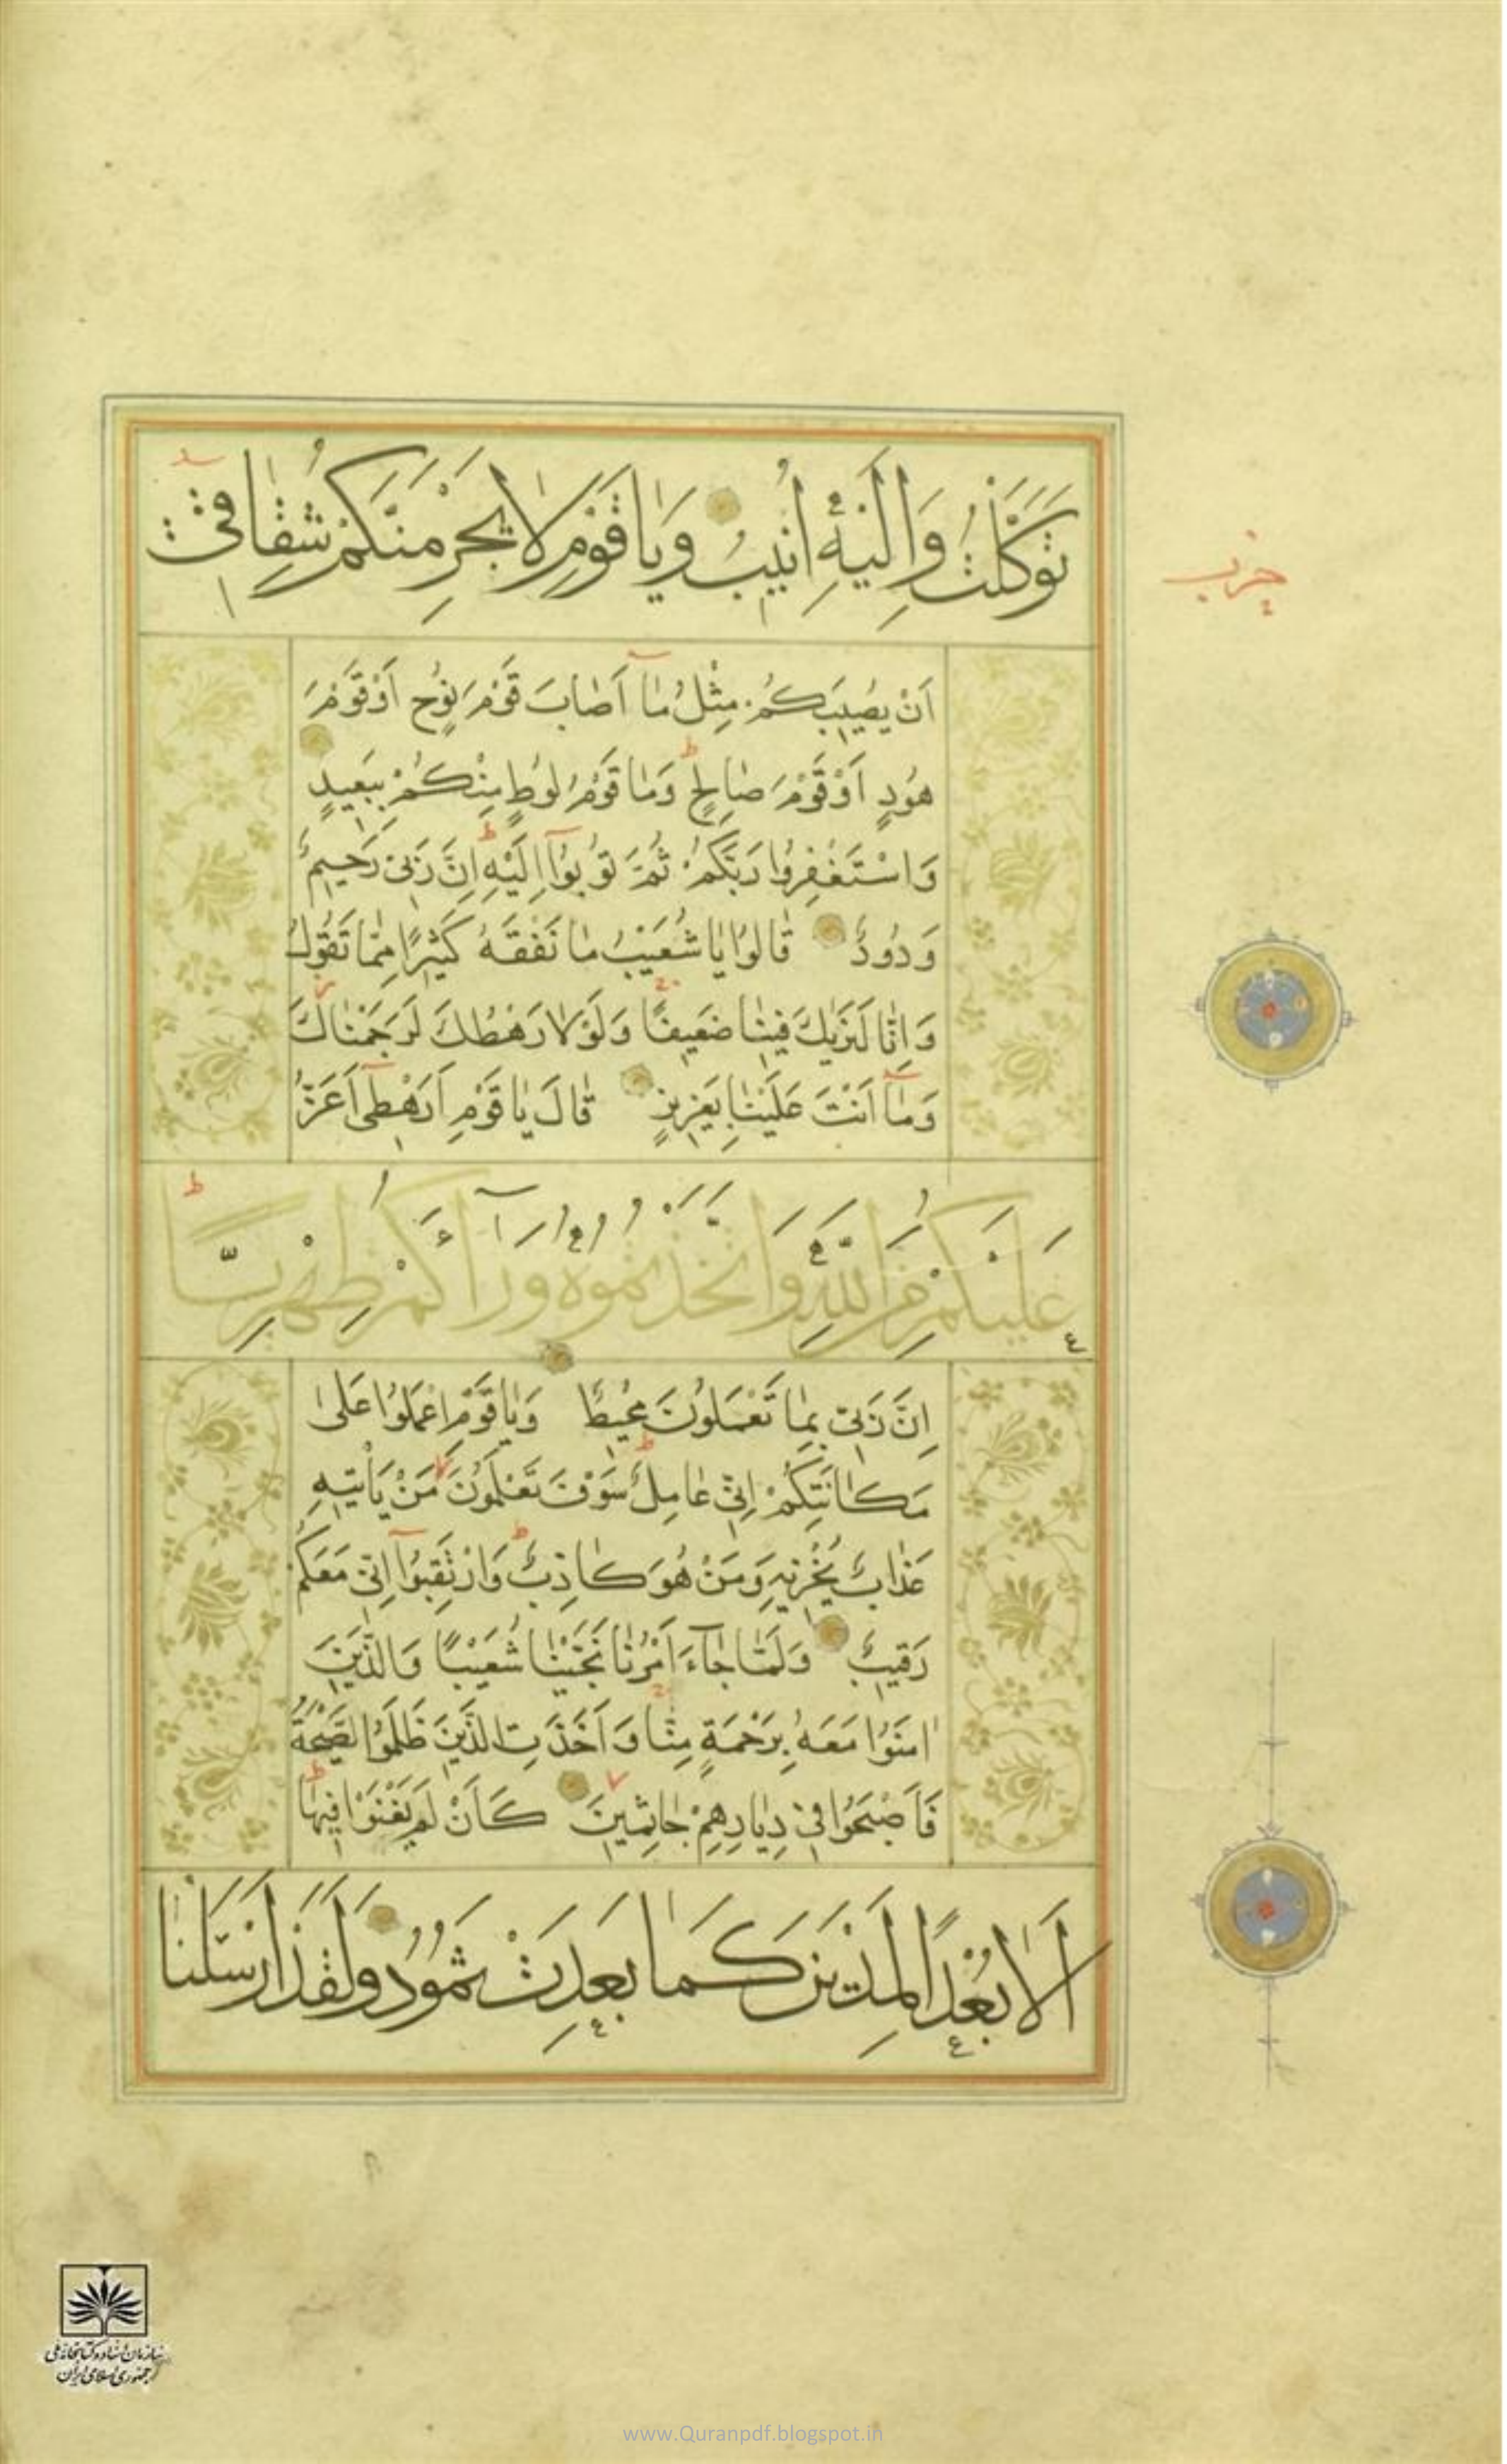 تَوَكَّلْتُ وَاِلَيْهِ اُنيبُ وَيٰا قَوْمِ لٰا يَجْرِمَنَّكُمْ شِقٰاقيٓ
حزب
اَنْ يُصيبَكُمْ مِثْلُ مٰآ اَصٰابَ قَوْمَ نُوحٍ اَوْ قَوْمَ
هُودٍ اَوْ قَوْمَ صٰالِحٍ وَمٰا قَوْمُ لُوطٍ مِنْكُمْ بِبَعيدٍ
وَاسْتَغْفِرُوا رَبَّكُمْ ثُمَّ تُوبُوٓا اِلَيْهِ اِنَّ رَبّي رَحيمٌ
وَدُودٌ قٰالُوا يٰا شُعَيْبُ مٰا نَفْقَهُ كَثيرًا مِمّٰا تَقُولُ
وَاِنّٰا لَنَرٰيكَ فينٰا ضَعيفًا وَلَوْلٰا رَهْطُكَ لَرَجَمْنٰاكَ
وَمٰآ اَنْتَ عَلَيْنٰا بِعَزيزٍ قٰالَ يٰا قَوْمِ اَرَهْطيٓ اَعَزُّ
عَلَيْكُمْ مِنَ اللّٰهِ وَاتَّخَذْتُمُوهُ وَرٰآءَكُمْ ظِهْرِيًّا
اِنَّ رَبّي بِمٰا تَعْمَلُونَ مُحيطٌ وَيٰا قَوْمِ اعْمَلُوا عَلىٰ
مَكٰانَتِكُمْ اِنّي عٰامِلٌ سَوْفَ تَعْلَمُونَ مَنْ يَأْتيهِ
عَذٰابٌ يُخْزيهِ وَمَنْ هُوَ كٰاذِبٌ وَارْتَقِبُوٓا اِنّي مَعَكُمْ
رَقيبٌ وَلَمّٰا جٰآءَ اَمْرُنٰا نَجَّيْنٰا شُعَيْبًا وَالَّذينَ
اٰمَنُوا مَعَهُ بِرَحْمَةٍ مِنّٰا وَاَخَذَتِ الَّذينَ ظَلَمُوا الصَّيْحَةُ
فَاَصْبَحُوا في دِيٰارِهِمْ جٰاثِمينَ كَاَنْ لَمْ يَغْنَوْا فيهٰا
اَلٰا بُعْدًا لِمَدْيَنَ كَمٰا بَعِدَتْ ثَمُودُ وَلَقَدْ اَرْسَلْنٰا
سازمان اسناد و کتابخانه ملی
جمهوری اسلامی ایران
www.Quranpdf.blogspot.in